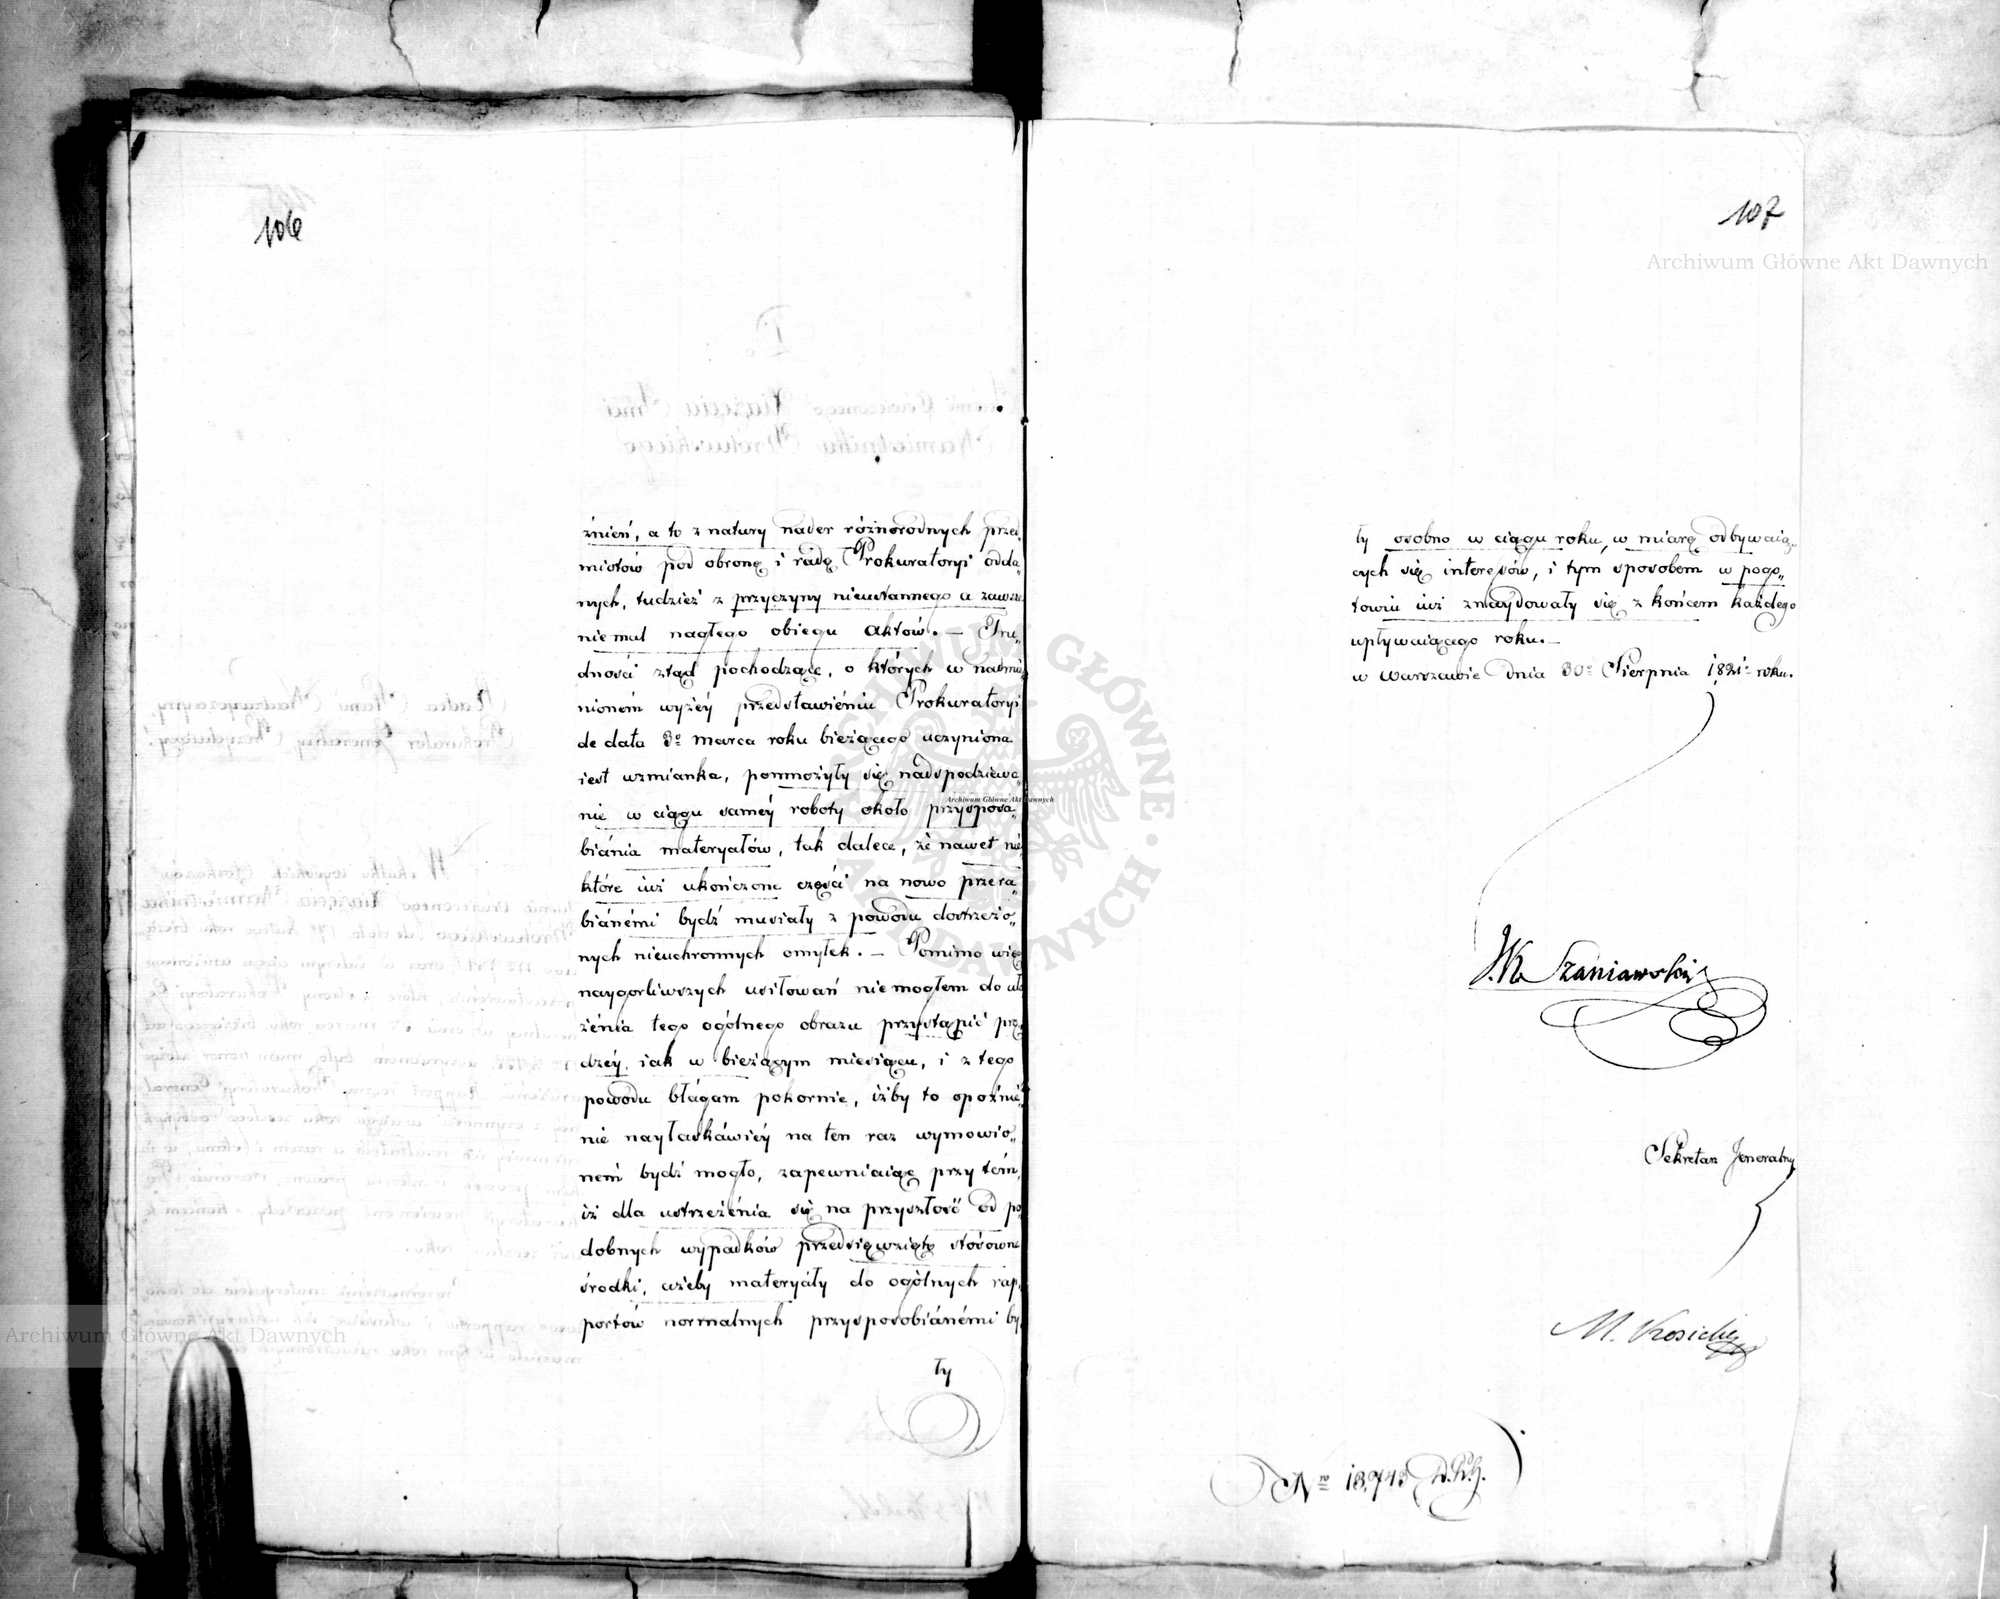 106
źnień, a to z natury nader różnorodnych przed„
miotów pod obronę i radę Prokuratoryi odda„
nych, tudzież z przyczyny nieustannego a zawsze
niemal nagłego obiegu aktów. — Tru„
dności ztąd pochodzące, o których w nadmie„
nionem wyżéy przedstawiéniu Prokuratoryi
de data 3º marca roku bieżącego uczyniona
iest wzmianka, pomnożyły się nadspodziewa„
nie w ciągu saméy roboty około przysposa„
biánia materyałów, tak dalece, że nawet nie„
które iuż ukończone części na nowo przera„
biánémi bydź musiały z powodu dostrzeżo„
nych nieuchronnych omyłek. — Pomimo więc
naygorliwszych usiłowań niemogłem do uło
żénia tego ogólnego obrazu przystąpić prę„
dzéy, iak w bieżącym miesiącu, i z tego
powodu błágam pokornie, iżby to opóźnié„
nie nayłaskáwiéy na ten raz wymowio„
nem bydź mogło, zapewniaiąc przy tém,
iż dla ustrzeżénia się na przyszłość od po„
dobnych wypadków przedsięwzięte stósowne
środki, ażeby materyáły do ogólnych rap„
portów normalnych przysposobiánémi by„
ły
107
Archiwum Główne Akt Dawnych
ły osobno w ciągu roku, w miarę odbywaią„
cych się interesów, i tym sposobem w pogo„
towiu iuż znaydowały się z końcem każdego
upływaiącego roku. —
w Warszawie dnia 30º Sierpnia 1821º roku.
J. K. Szaniawski
Sekretarz Jeneralny
M.
Nro
Archiwum Główne Akt Dawnych
ARCHIWUM GŁÓWNE AKT DAWNYCH
Archiwum Główne Akt Dawnych